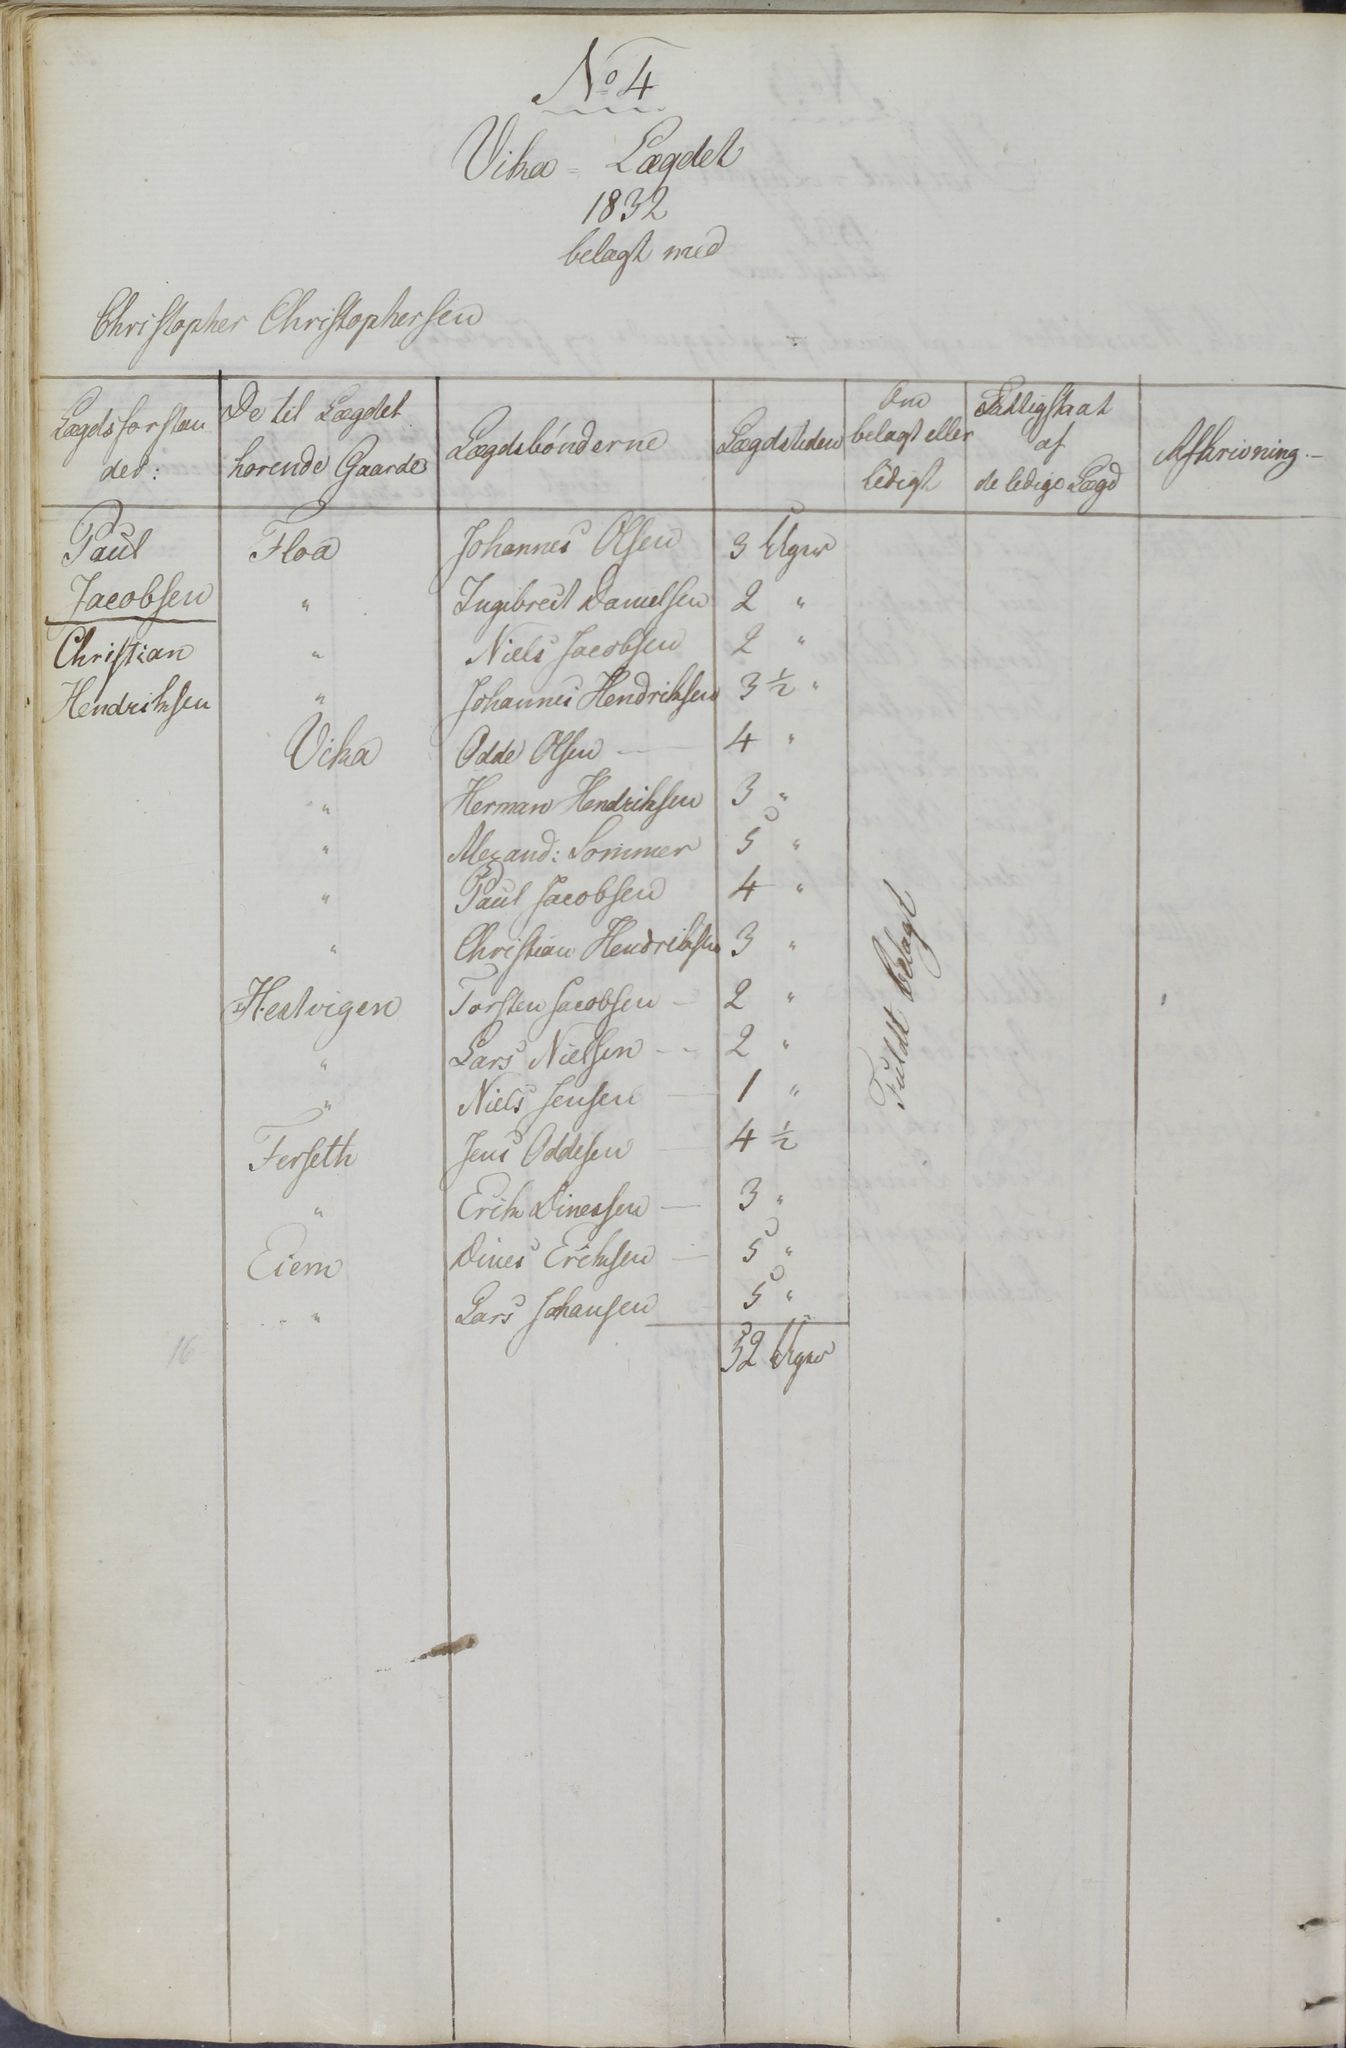 No 4
Vika - Lægdet
1832
belagt med
Christopher Christophersen
Lægdsforstan
der:
De til Lægdet
hørende Gaarde
Lægdsbønderne
Lægdstiden
Om
belagt eller
ledigt
Fattigskat
af
de ledige Lægd
Afskrivning.-
Paul Floa Johannes Olsen 3 Uger
Jacobsen " Ingebreit Danielsen 2 "
Christian " Niels Jacobsen 2 "
Hendriksen " Johannes Hendriksen 3 ½ "
Vika Odde Olsen 4 "
" Herman Hendriksen 3 "
" Alexand: Sommer 5 "
" Paul Jacobsen 4 "
" Christian Hendriksen 3 "
Hestvigen Torsten Jacobsen - 2 "
" Lars Nielsen - 2 "
" Niels Jensen 1 "
Ferseth Jens Oddesen 4 ½
" Erik Dinessen 3 "
Eiem Dines Eriksen 5 "
" Lars Johansen 5 "
16 52 Uger
Fuldt belagt